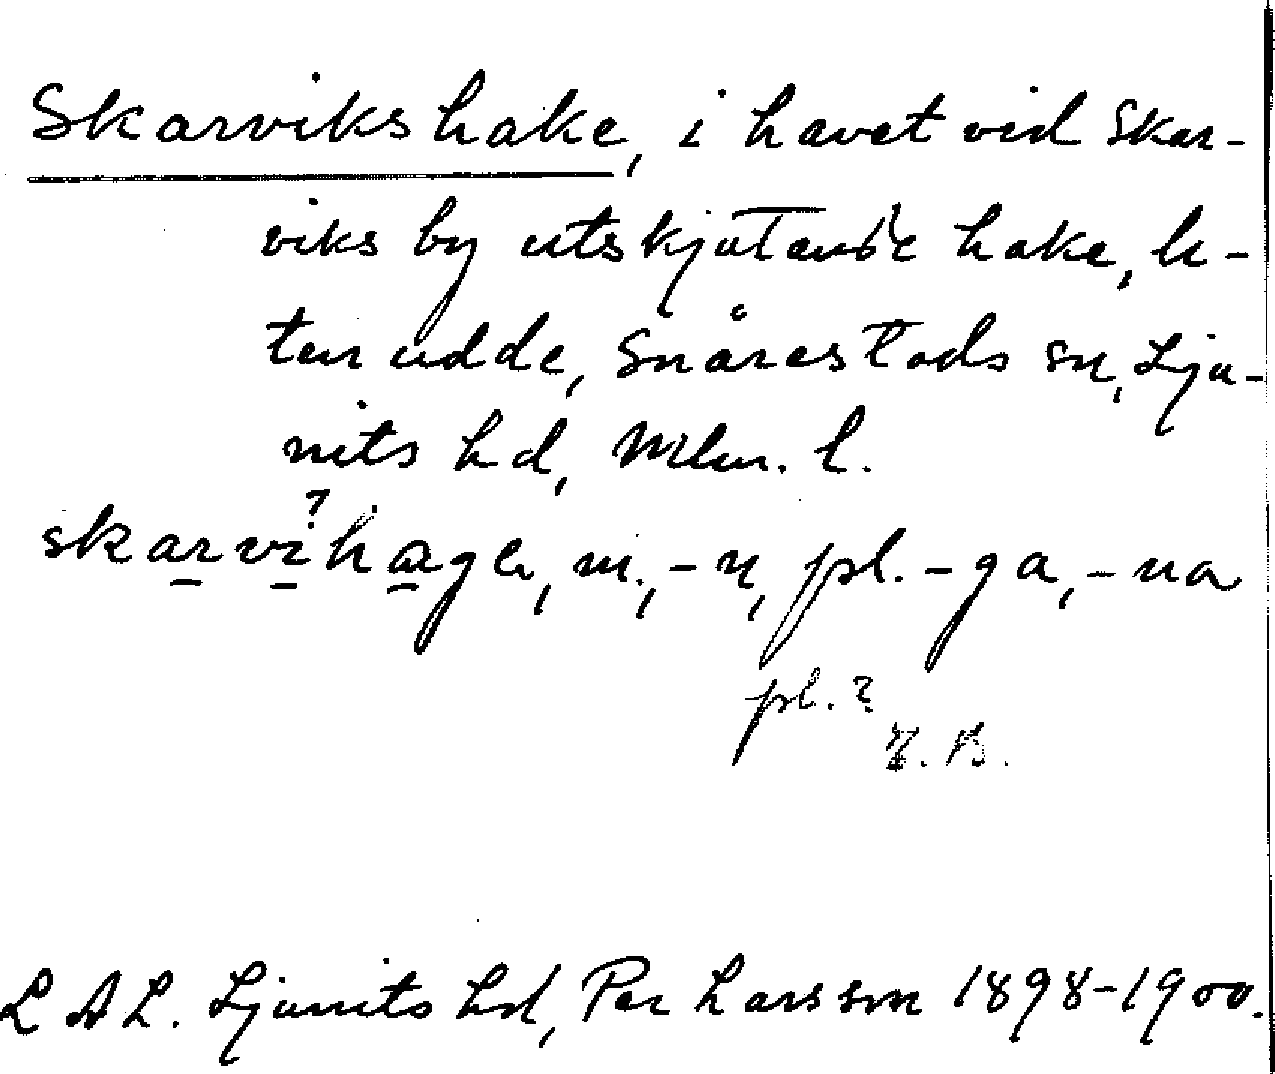 Skarvikshake, i havet vid Skar-
viks by utskjutande hake, li-
ten udde, Snårestads sn, Lju-
nits hd, Mlm. l.
?
skarvihage, m., -n, pl. -ga, -na
pl.?
B.
L A L. Ljunits hd, Per Larsson 1898-1900.